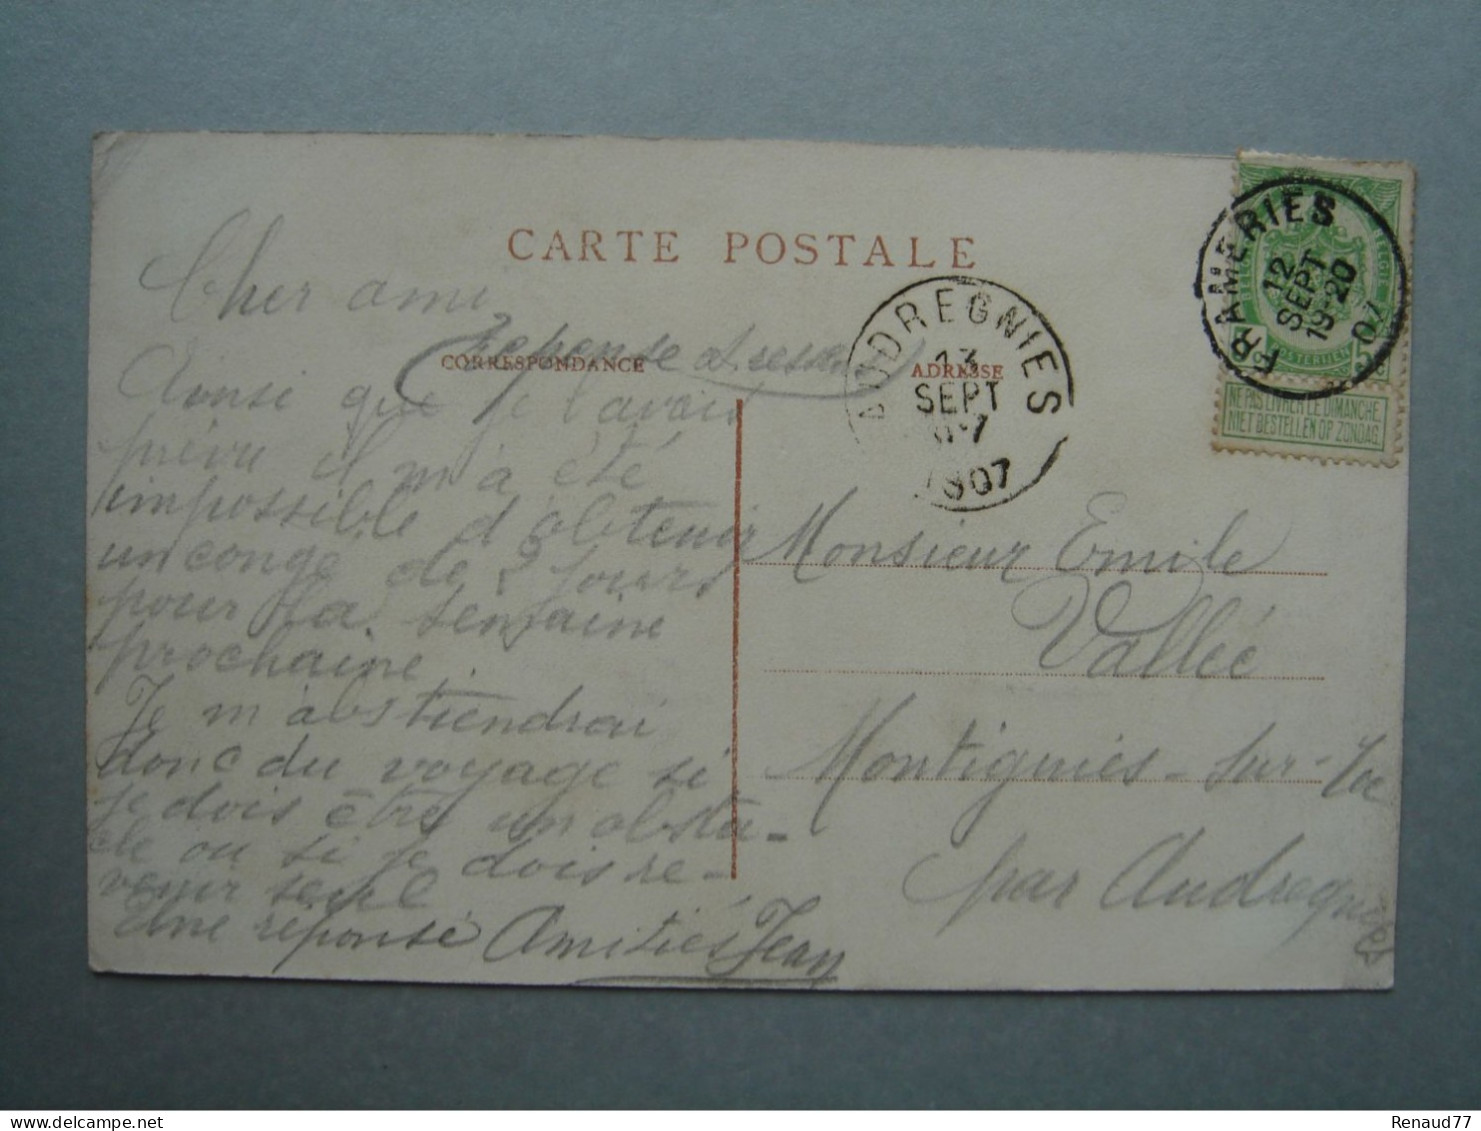 CARTE POSTALE
CORRESPONDANCE
ADRESSE
Cher ami
Réponse
Ainsi que je l'avais
prévu il m'a été
impossible d'obtenir
un congé de 2 jours
pour la semaine
prochaine
Je m'abstiendrai
donc du voyage si
je dois être un obsta-
cle ou si je dois re-
venir seul
Une réponse Amitiés Jean
FRAMERIES
12
SEPT
19-20
07
AUDREGNIES
13
SEPT
1907
NE PAS LIVRER LE DIMANCHE
NIET BESTELLEN OP ZONDAG
Monsieur Emile
Vallée
Montignies-sur-Roc
par Audregnies
Renaud77